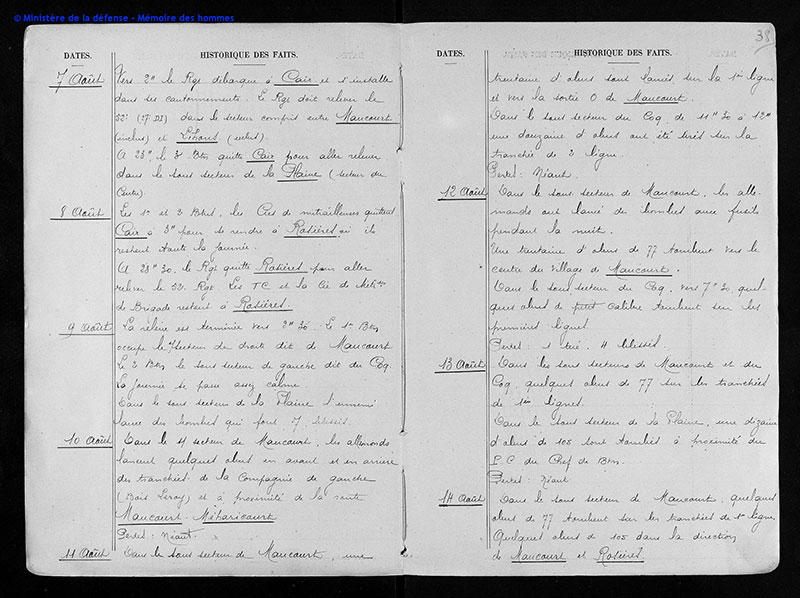 © Ministère de la défense - Mémoire des hommes
DATES. HISTORIQUE DES FAITS.
7 Août Vers 2h le Rgt débarque à Caix et s'installe
dans ses cantonnements. Le Rgt doit relever le
52e (27 DI) dans le secteur compris entre Maucourt
(inclus) et Lihons (exclus).
A 23h, le 3e Btn quitte Caix pour aller relever
dans le sous secteur de la Plaine (secteur du
Centre).
8 Août Les 1er et 2 Btns, les Cies de mitrailleuses quittent
Caix à 3h pour se rendre à Rosières où ils
restent toute la journée.
A 20h30, le Rgt quitte Rosières pour aller
relever le 52e Rgt. Les TC et la Cie de Mitses
de Brigade restent à Rosières.
9 Août La relève est terminée vers 2h30. Le 1er Btn
occupe le secteur de droite dit de Maucourt
Le 2 Btn le sous secteur de gauche dit du Coq.
La journée se passe assez calme.
Dans le sous secteur de la Plaine l'ennemi
lance des bombes qui font 7 blessés.
10 Août Dans le s/ secteur de Maucourt, les allemands
lancent quelques obus en avant et en arrière
des tranchées de la Compagnie de gauche
(Bois Leroy) et à proximité de la route
Maucourt-Méharicourt
Pertes: Néant.
11 Août Dans le sous secteur de Maucourt, une
38
DATES. HISTORIQUE DES FAITS.
trentaine d'obus sont lancés sur la 1ère ligne
et vers la sortie O de Maucourt.
Dans le sous secteur du Coq, de 11h30 à 12h
une douzaine d'obus ont été tirés sur la
tranchée de 2 ligne.
Pertes: Néant.
12 Août Dans le sous secteur de Maucourt, les alle-
mands ont lancé des bombes avec fusils
pendant la nuit.
Une trentaine d'obus de 77 tombent vers le
centre du village de Maucourt.
Dans le sous secteur du Coq, vers 7h30, quel-
ques obus de petit calibre tombent sur les
premières lignes.
Pertes: 1 tué, 4 blessés.
13 Août Dans les sous secteurs de Maucourt et du
Coq, quelques obus de 77 sur les tranchées
de 1ères lignes.
Dans le sous secteur de la Plaine, une dizaine
d'obus de 105 sont tombés à proximité du
P.C du Chef de Btn.
Pertes: Néant
14 Août Dans le sous secteur de Maucourt, quelques
obus de 77 tombent sur les tranchées de 1ère ligne
Quelques obus de 105 dans la direction
de Maucourt et Rosières